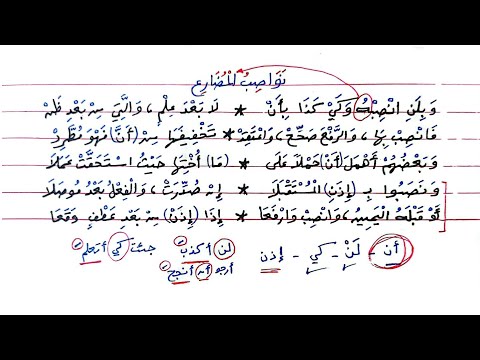 نَوَاصِبُ الْمُضَارِعِ
وَبِلَنِ انْصِبْهُ وَكَيْ كَذَا بِأَنْ * لَا بَعْدَ عِلْمٍ، وَالَّتِي مِنْ بَعْدِ ظَنْ
فَانْصِبْ بِهَا، وَالرَّفْعَ صَحِّحْ، وَاعْتَقِدْ * تَخْفِيفَهَا مِنْ (أَنَّ) فَهْوَ مُطَّرِدْ
وَبَعْضُهُمْ أَهْمَلَ (أَنْ) حَمْلًا عَلَى * (مَا) أُخْتِهَا حَيْثُ اسْتَحَقَّتْ عَمَلَا
وَنَصَبُوا بِـ (إِذَنِ) الْمُسْتَقْبَلَا * إِنْ صُدِّرَتْ، وَالْفِعْلُ بَعْدُ مُوصَلَا
أَوْ قَبْلَهُ الْيَمِينُ، وَانْصِبْ وَارْفَعَا * إِذَا (إِذَنْ) مِنْ بَعْدِ عَطْفٍ وَقَعَا
أن - لَنْ - كي - إذن لن أكذبَ جئت كي أتعلم
أرجو أن أنجح